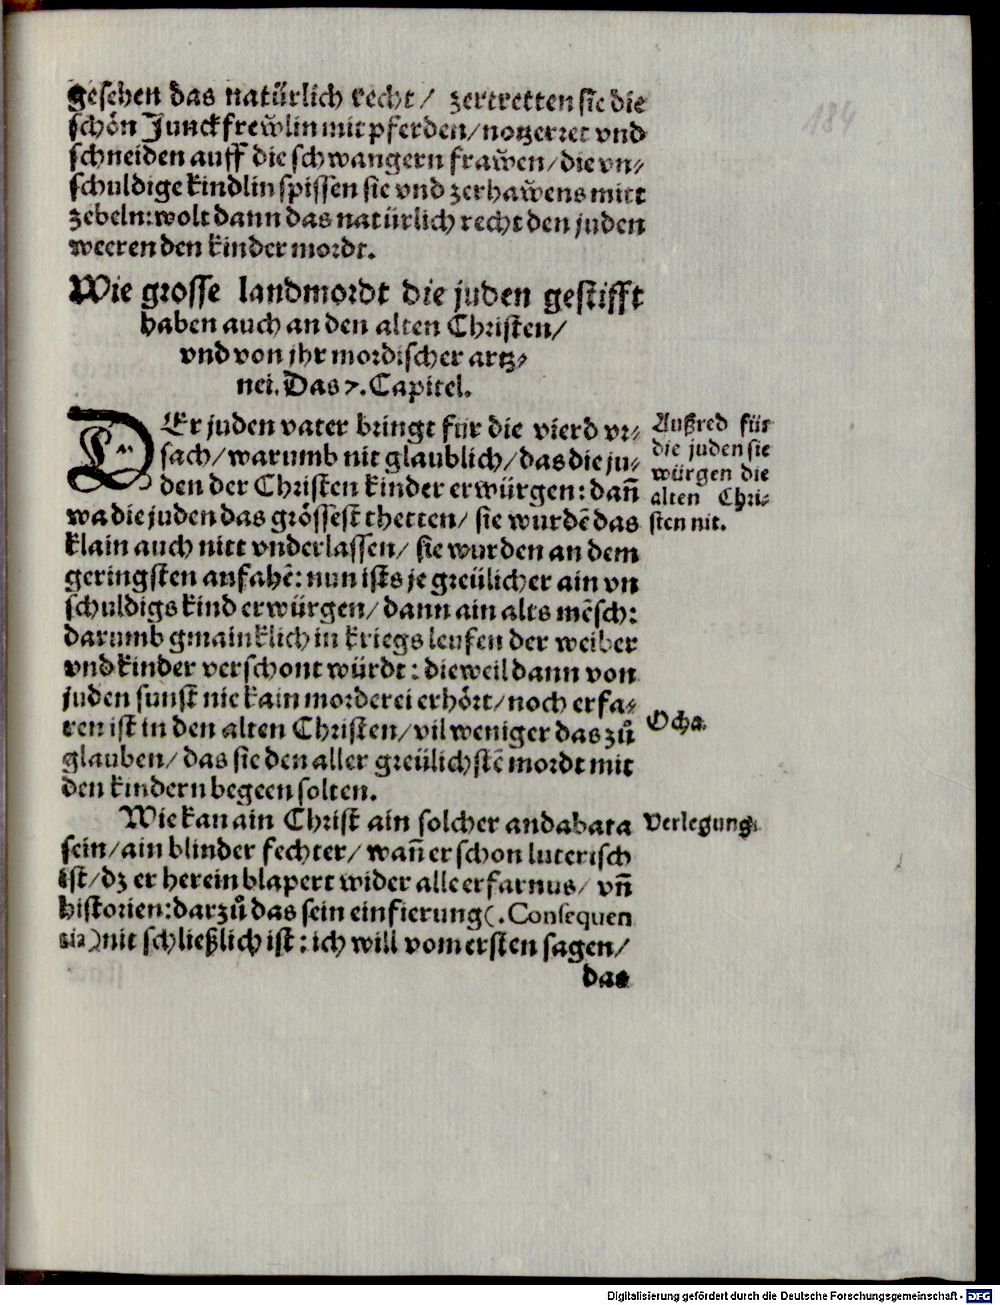 gesehen das natürlich recht/ zertretten sie die
schön Junckfrewlin mit pferden/notzerret vnd
schneiden auff die schwangern frawen/die vn⸗
schuldige kindlin spissen sie vnd zerhawens mitt
zebeln:wolt dann das natürlich recht den juden
weeren den kinder mordt.
Wie grosse landmordt die juden gestifft
haben auch an den alten Christen/
vnd von jhr mordischer artz⸗
nei. Das 7. Capitel.
DEr juden vater bringt für die vierd vr⸗
sach/warumb nit glaublich/das die ju⸗
den der Christen kinder erwürgen: dañ
wa die juden das grössest thetten/ sie wurdē das
klain auch nitt vnderlassen/ sie wurden an dem
geringsten anfahē: nun ists je greülicher ain vn
schuldigs kind erwürgen/ dann ain alts mēsch:
darumb gmainklich in kriegs leufen der weiber
vnd kinder verschont würdt: dieweil dann von
juden sunst nie kain morderei erhört/noch erfa⸗
ren ist in den alten Christen/vil weniger das zů
glauben/ das sie den aller greülichstē mordt mit
den kindern begeen solten.
Wie kan ain Christ ain solcher andabata
sein/ain blinder fechter/ wañ er schon luterisch
ist/dz er herein blapert wider alle erfarnus/ vñ
historien:darzů das sein einfierung(.Consequen
tia)nit schließlich ist: ich will vom ersten sagen/
das
Außred für
die juden sie
würgen die
alten Chri⸗
sten nit.
Ocha.
Verlegung.
184
Digitalisierung gefördert durch die Deutsche Forschungsgemeinschaft - DFG